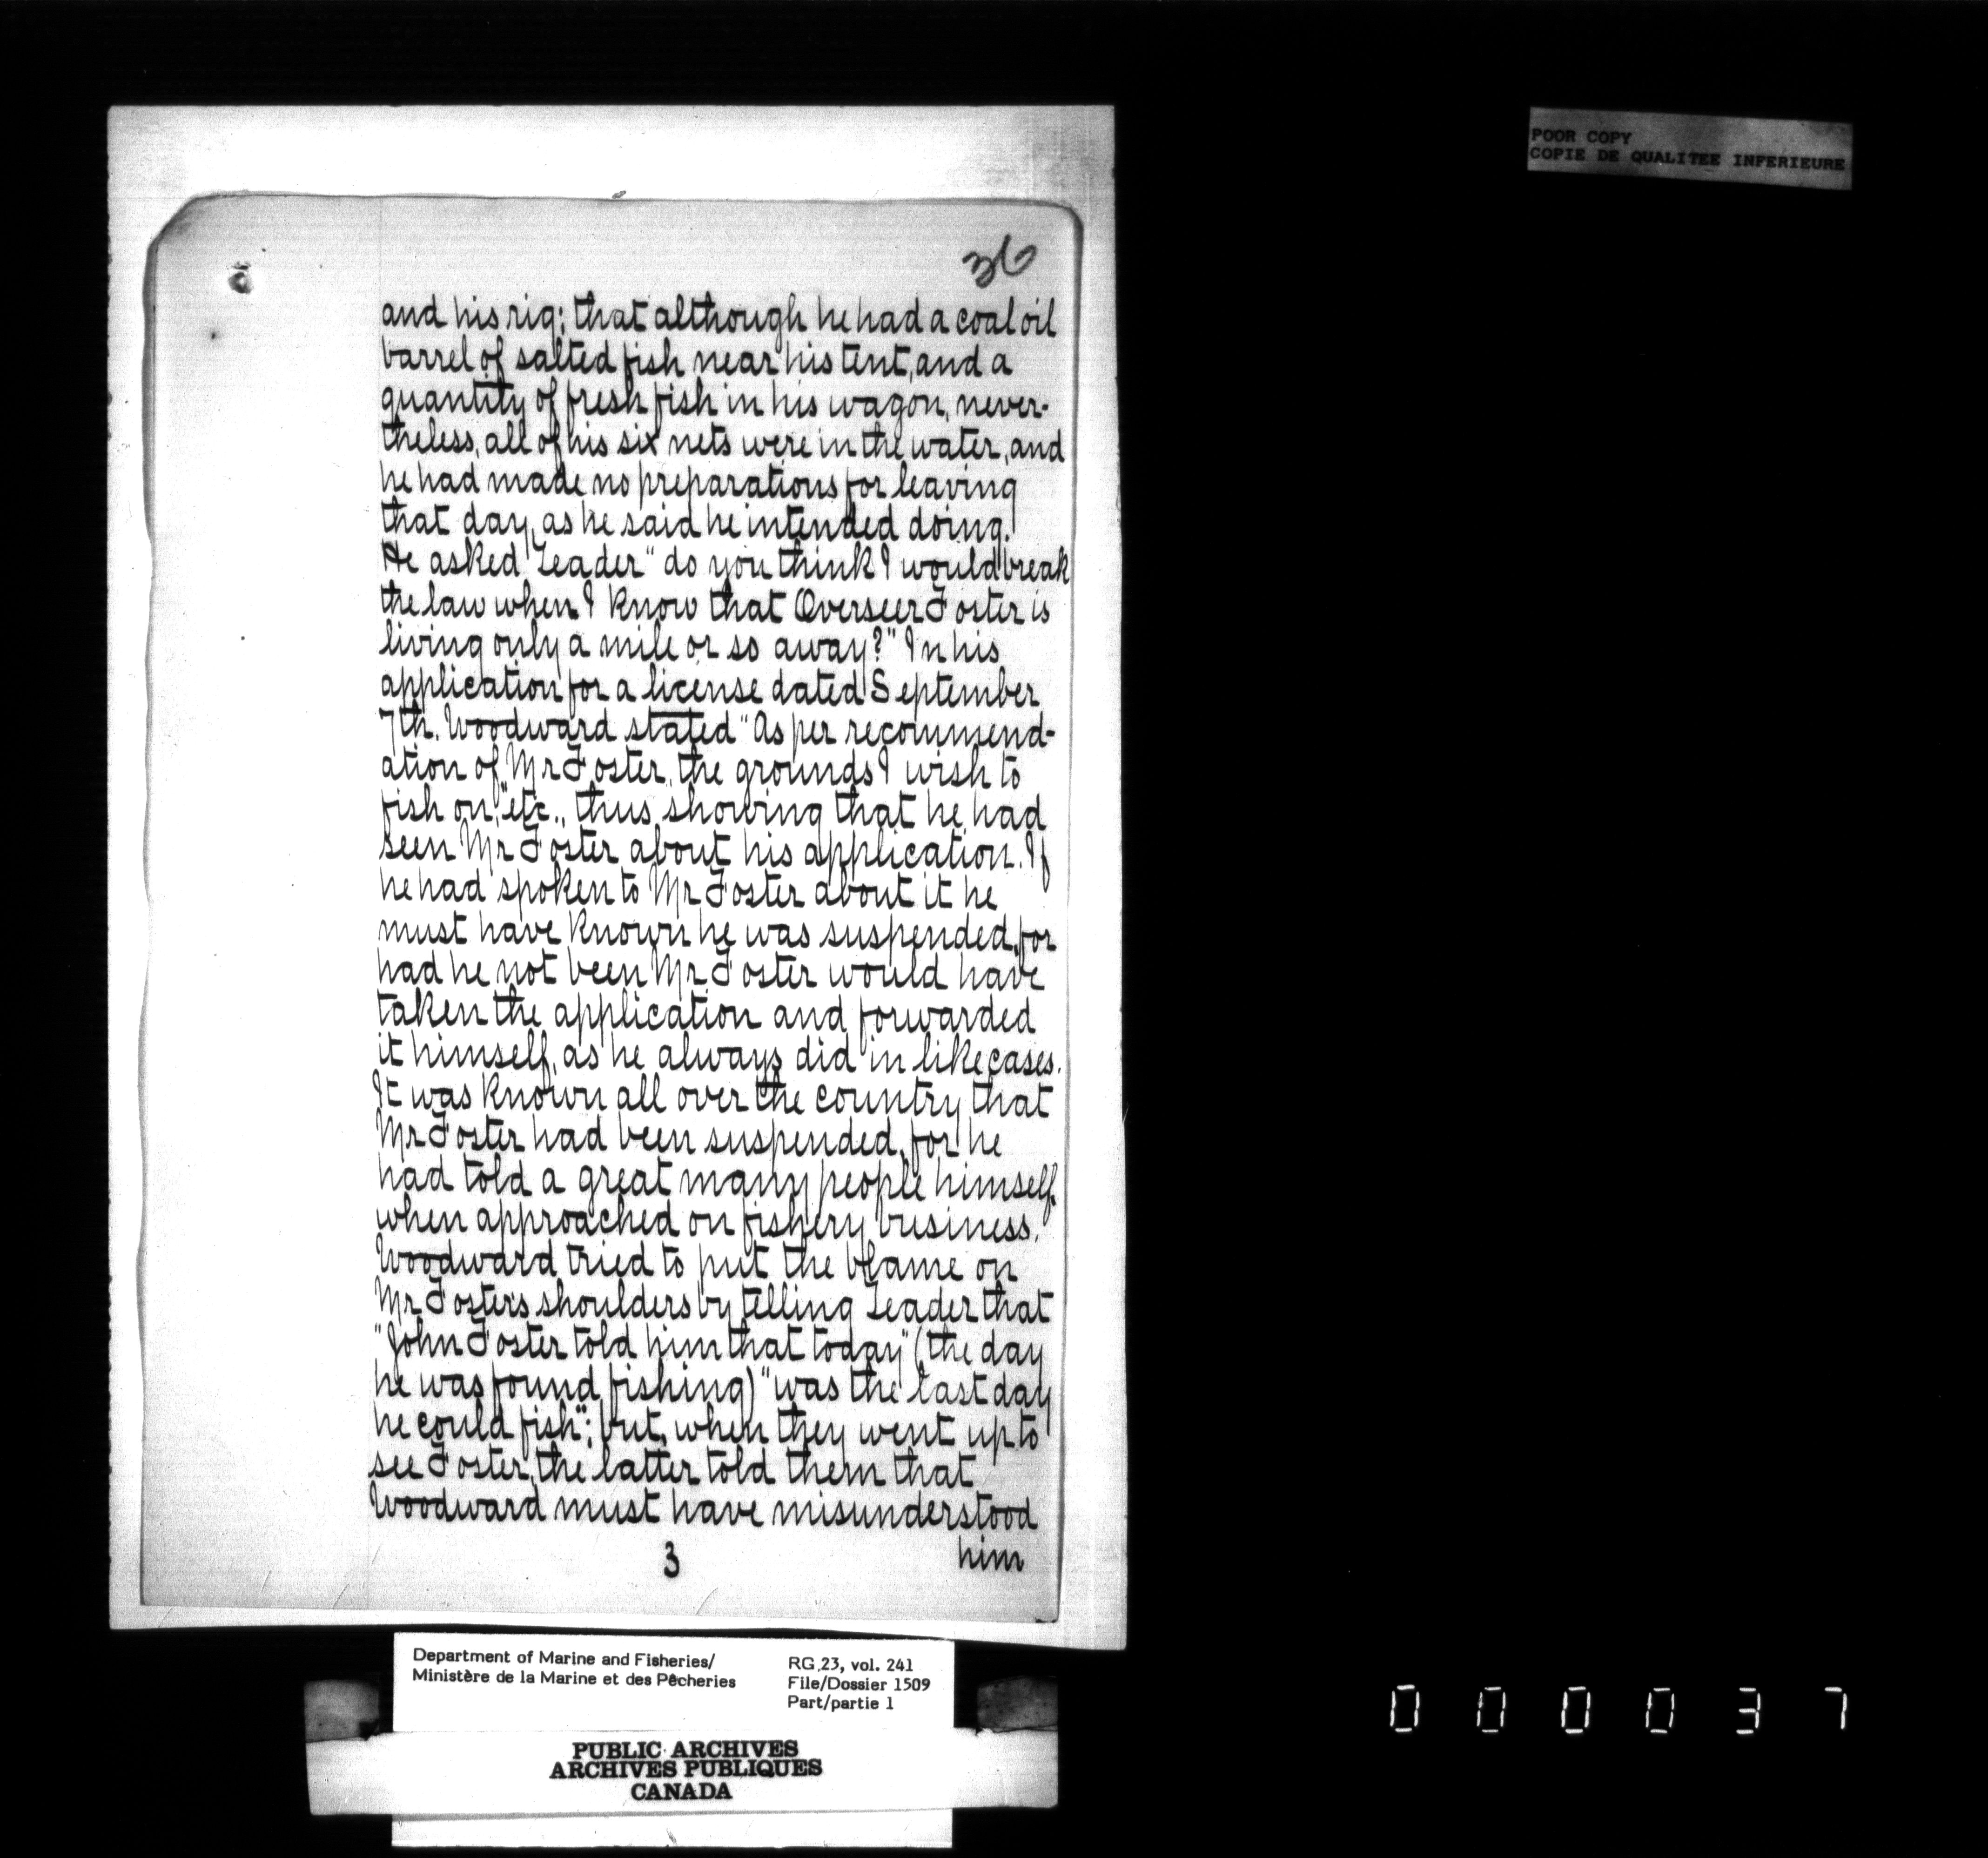 POOR COPY
COPIE DE QUALITEE INFERIEURE
36
and his rig; that although he had a coal oil
barrel of salted fish near his tent, and a
quantity of fresh fish in his wagon, never-
theless, all of his six nets were in the water, and
he had made no preparations for leaving
that day, as he said he intended doing.
He asked Leader "do you think I would break
the law when I know that Overseer Foster is
living only a mile or so away?" In his
application for a license dated September
7th. Woodward stated "As per recommend-
ation of Mr Foster, the grounds I wish to
fish on," etc., thus showing that he had
seen Mr Foster about his application. If
he had spoken to Mr Foster about it he
must have known he was suspended, for
had he not been Mr Foster would have
taken the application and forwarded
it himself, as he always did in like cases.
It was known all over the country that
Mr Foster had been suspended, for he
had told a great many people himself,
when approached on fishery business.
Woodward tried to put the blame on
Mr Foster's shoulders by telling Leader that
"John Foster told him that today" (the day
he was found fishing) "was the last day
he could fish"; but, when they went up to
see Foster, the latter told them that
Woodward must have misunderstood
him
3
Department of Marine and Fisheries/
Ministère de la Marine et des Pêcheries
RG 23, vol. 241
File/Dossier 1509
Part/partie 1
PUBLIC ARCHIVES
ARCHIVES PUBLIQUES
CANADA
000037